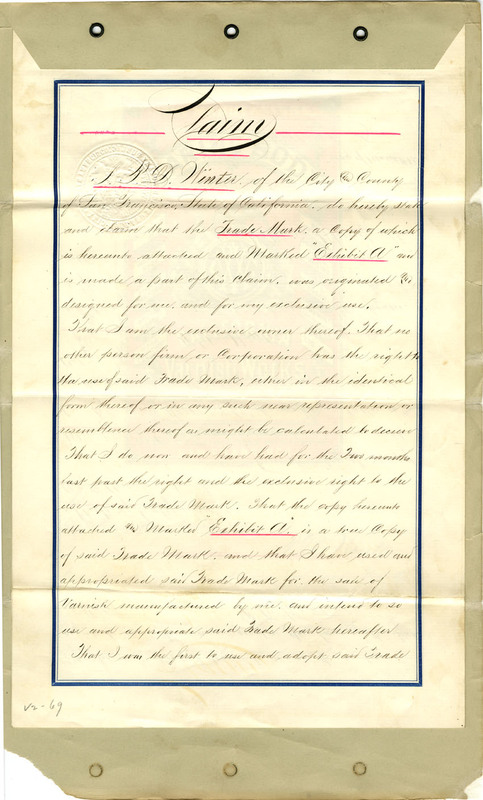 Claim
I, P. D. Winter, of the City & County
of San Francisco, State of California, do hereby state
and claim that the Trade Mark, a Copy of which
is hereunto attached and Marked "Exhibit A" and
is made a part of this Claim, was originated &
designed for me, and for my exclusive use.
That I am the exclusive owner thereof. That no
other person firm or Corporation has the right to
the use of said Trade Mark, either in the identical
form thereof or in any such near representation or
resemblence thereof as might be calculated to deceive
That I do now and have had for the Two months
last past the right and the exclusive right to the
use of said Trade Mark. That the copy hereunto
attached & Marked "Exhibit A" is a true Copy
of said Trade Mark, and that I have used and
appropriated said Trade Mark for the sale of
Varnish manufactured by me, and intend to so
use and appropriate said Trade Mark hereafter
That I was the first to use and adopt said Trade
V2-69